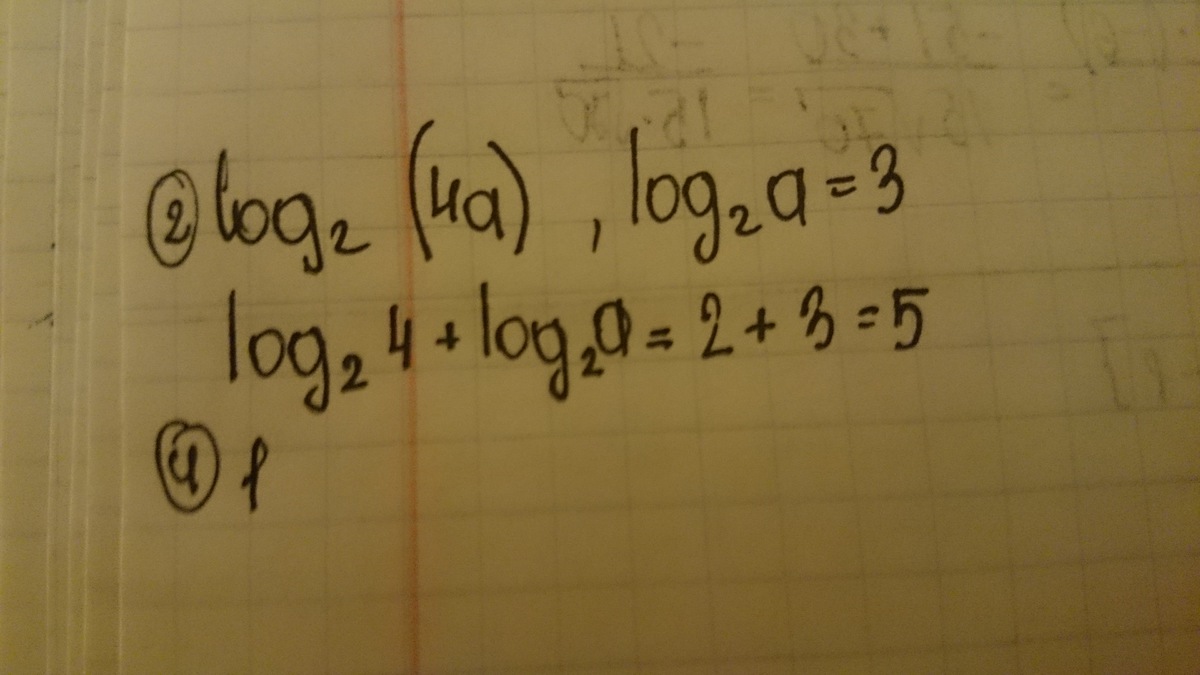 ② log₂ (4a) , log₂ a = 3
log₂ 4 + log₂ a = 2 + 3 = 5
④